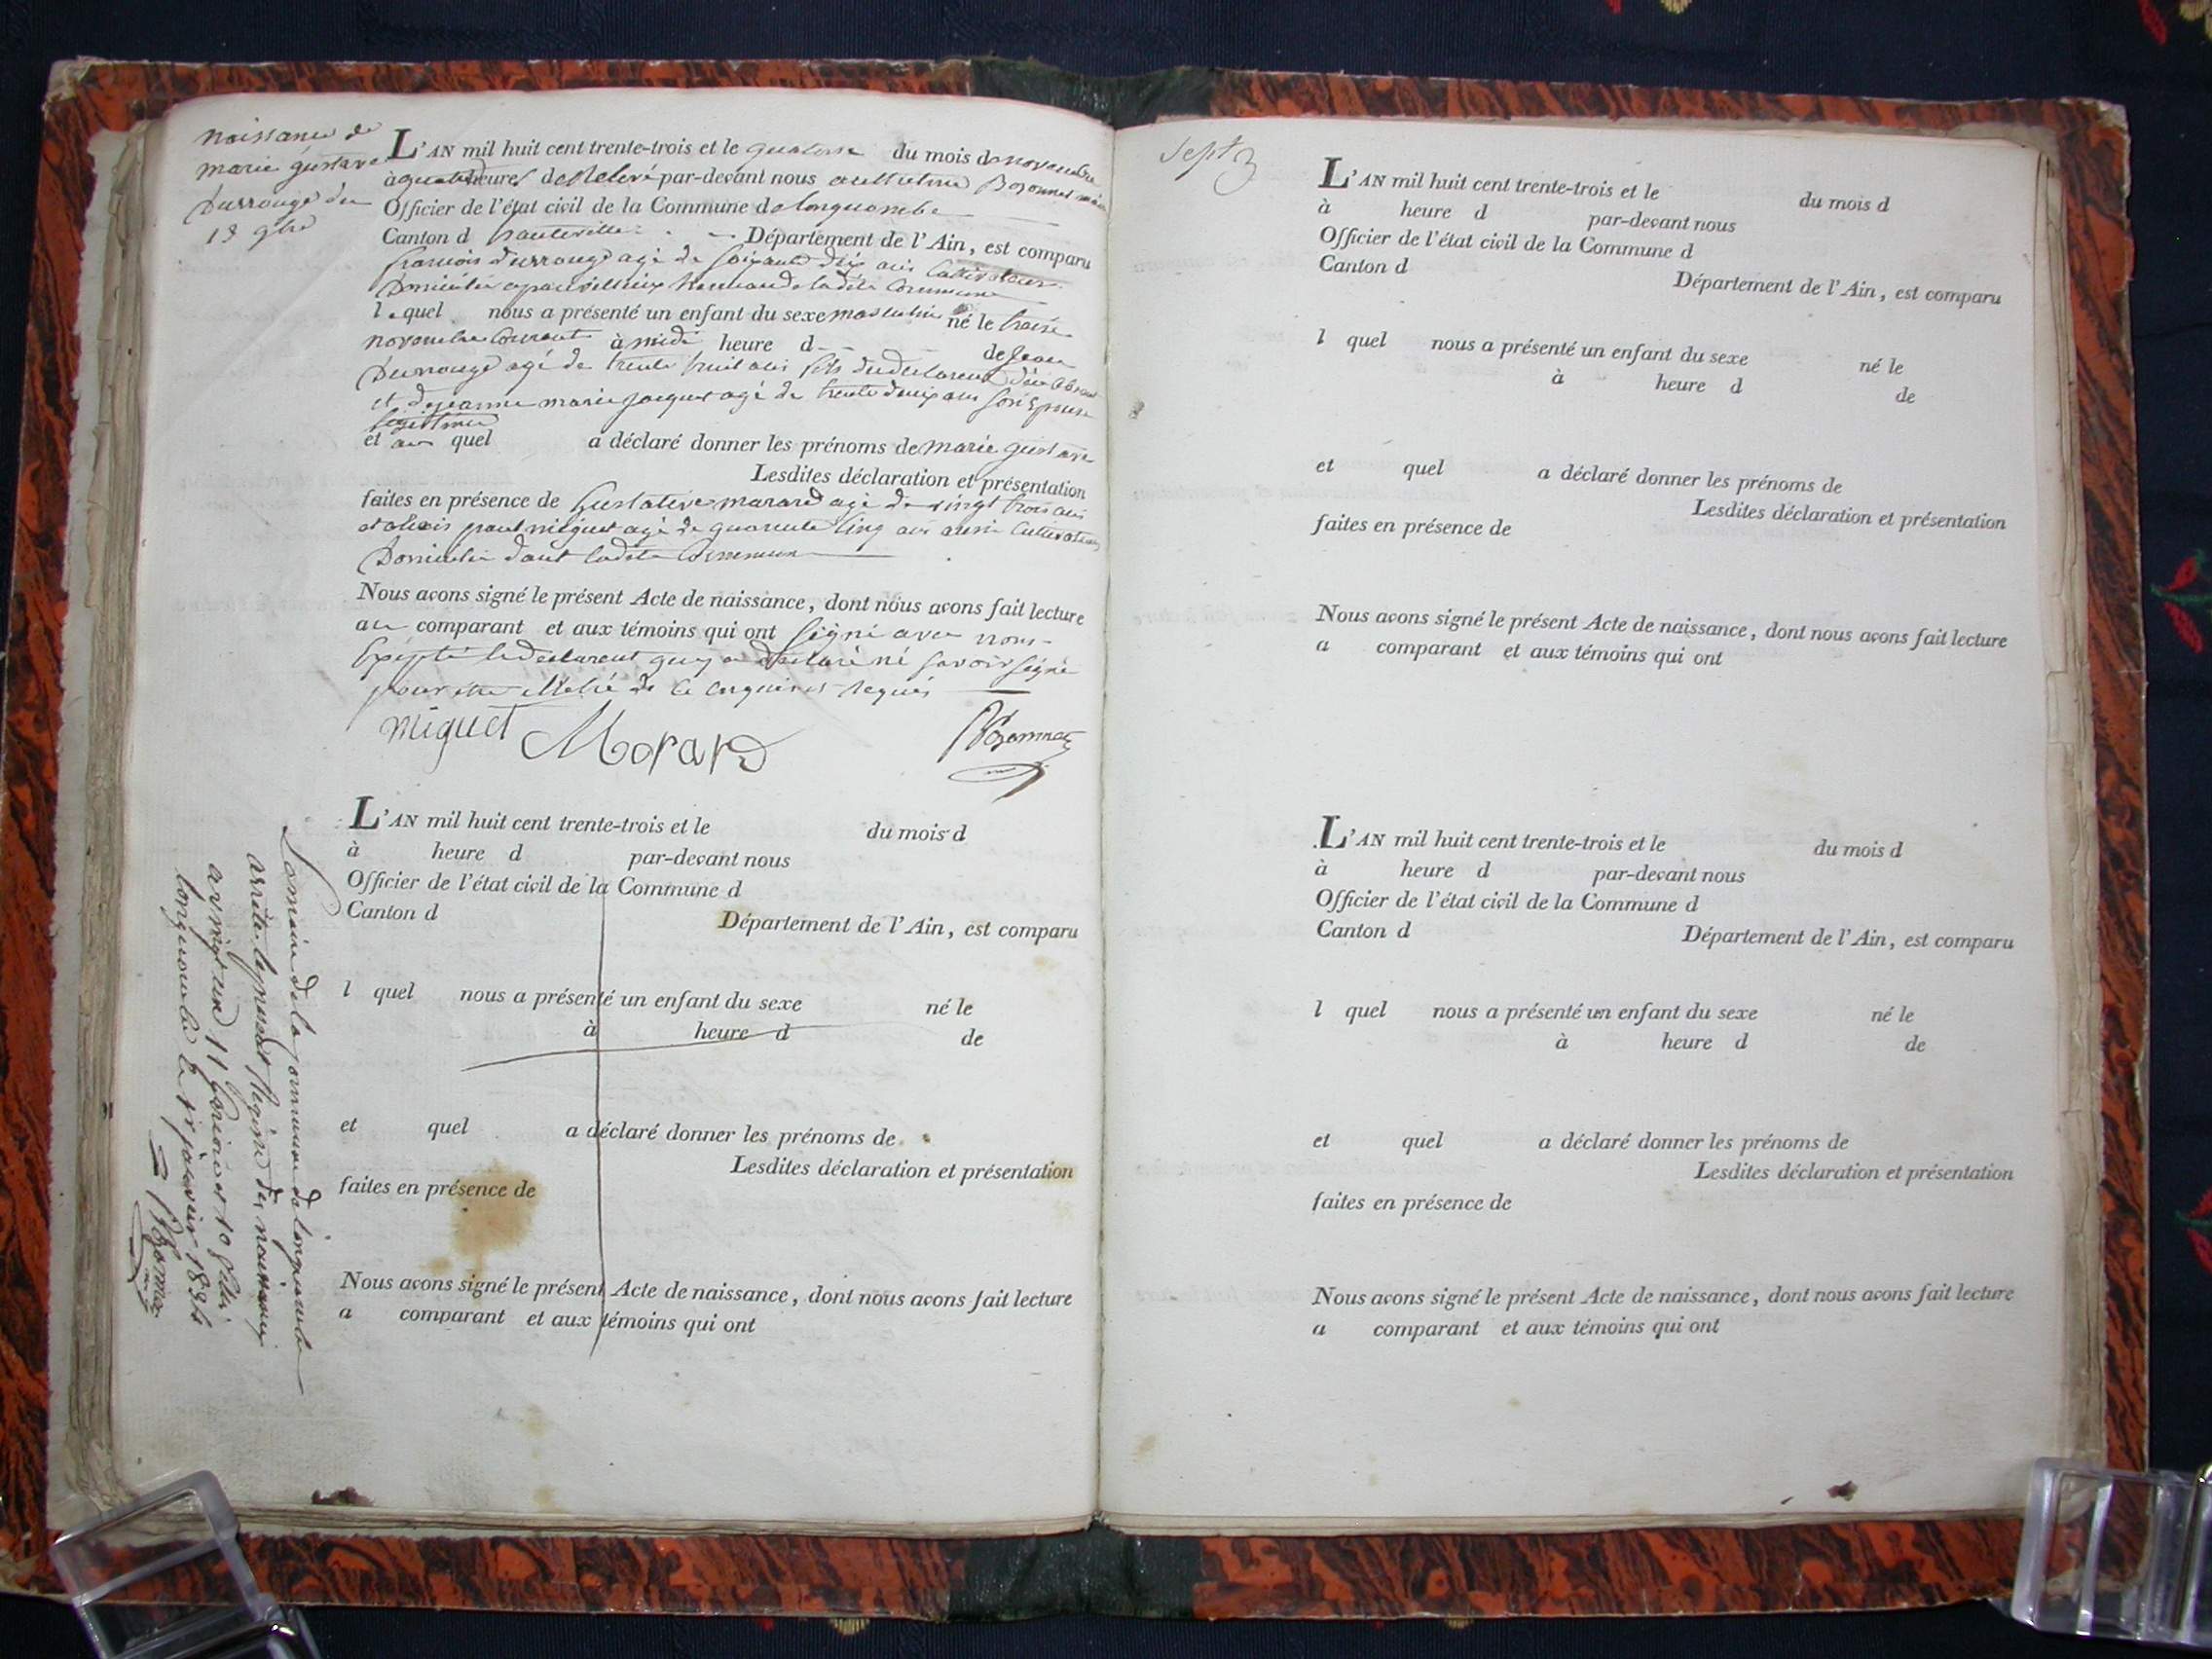 naissance de
marie gustave
Durrouge du
13 9bre
L'AN mil huit cent trente-trois et le quatorse du mois de novembre
à quatre heures de par-devant nous Bozonnet maire
Officier de l'état civil de la Commune de longecombe
Canton d hauteville Département de l'Ain, est comparu
francois Durrouge agé de soixante dix ans Cultivateur
Domicilié de ladite Commune
lequel nous a présenté un enfant du sexe masculin né le treise
novembre Courant à midi heure d de Jean
Durrouge agé de trente huit ans fils du declarent
et de jeanne marie jacquet agé de trente deux ans son Epouse
legitime
et au quel a déclaré donner les prénoms de marie gustave
Lesdites déclaration et présentation
faites en présence de morard agé de vingt trois ans
et paul miguet agé de quarente cinq ans aussi cultivateurs
Domicilié dans ladite Commune
Nous avons signé le présent Acte de naissance, dont nous avons fait lecture
au comparant et aux témoins qui ont signé avec nous
Exepté le declarent quy a declaré né savoir signé
pour etre de ce enquis et requis
miguet Morard Bozonnet
L'AN mil huit cent trente-trois et le du mois d
à heure d par-devant nous
Officier de l'état civil de la Commune d
Canton d Département de l'Ain, est comparu
l quel nous a présenté un enfant du sexe né le
à heure d de
et quel a déclaré donner les prénoms de
Lesdites déclaration et présentation
faites en présence de
Nous avons signé le présent Acte de naissance, dont nous avons fait lecture
a comparant et aux témoins qui ont
Le maire de la commune de longecombe
arrête le present Registre des naissances
a vingt une 11 garcons et 10 filles
longecombe le 1r janvier 1834
Bozonnet
sept 3
L'AN mil huit cent trente-trois et le du mois d
à heure d par-devant nous
Officier de l'état civil de la Commune d
Canton d Département de l'Ain, est comparu
l quel nous a présenté un enfant du sexe né le
à heure d de
et quel a déclaré donner les prénoms de
Lesdites déclaration et présentation
faites en présence de
Nous avons signé le présent Acte de naissance, dont nous avons fait lecture
a comparant et aux témoins qui ont
L'AN mil huit cent trente-trois et le du mois d
à heure d par-devant nous
Officier de l'état civil de la Commune d
Canton d Département de l'Ain, est comparu
l quel nous a présenté un enfant du sexe né le
à heure d de
et quel a déclaré donner les prénoms de
Lesdites déclaration et présentation
faites en présence de
Nous avons signé le présent Acte de naissance, dont nous avons fait lecture
a comparant et aux témoins qui ont